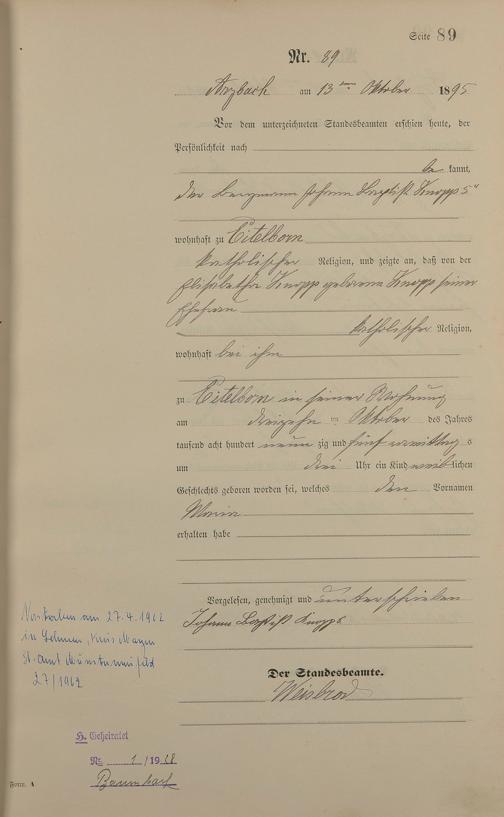 Seite 89
Nr. 89
Arzbach am 13ten Oktober 1895
Vor dem unterzeichneten Standesbeamten erschien heute, der
Persönlichkeit nach
be kannt,
der Bergmann Johann Baptist Knopp 5r
wohnhaft zu Eitelborn
katholischer Religion, und zeigte an, daß von der
Elisabetha Knopp geborene Knopp seiner
Ehefrau
katholischer Religion,
wohnhaft bei ihm
zu Eitelborn in seiner Wohnung
am dreizehn ten Oktober des Jahres
tausend acht hundert neun zig und fünf vormittags
um drei Uhr ein Kind weiblichen
Geschlechts geboren worden sei, welches den Vornamen
Maria
erhalten habe
Vorgelesen, genehmigt und unterschrieben
Johann Baptist Knopp
Der Standesbeamte.
Weisbrod
Verstorben am 27.4.1962
in Lehmen, Kreis Mayen
St.Amt Münstermaifeld
27/1962
H. Geheiratet
Nr. 1 / 19
Form. A